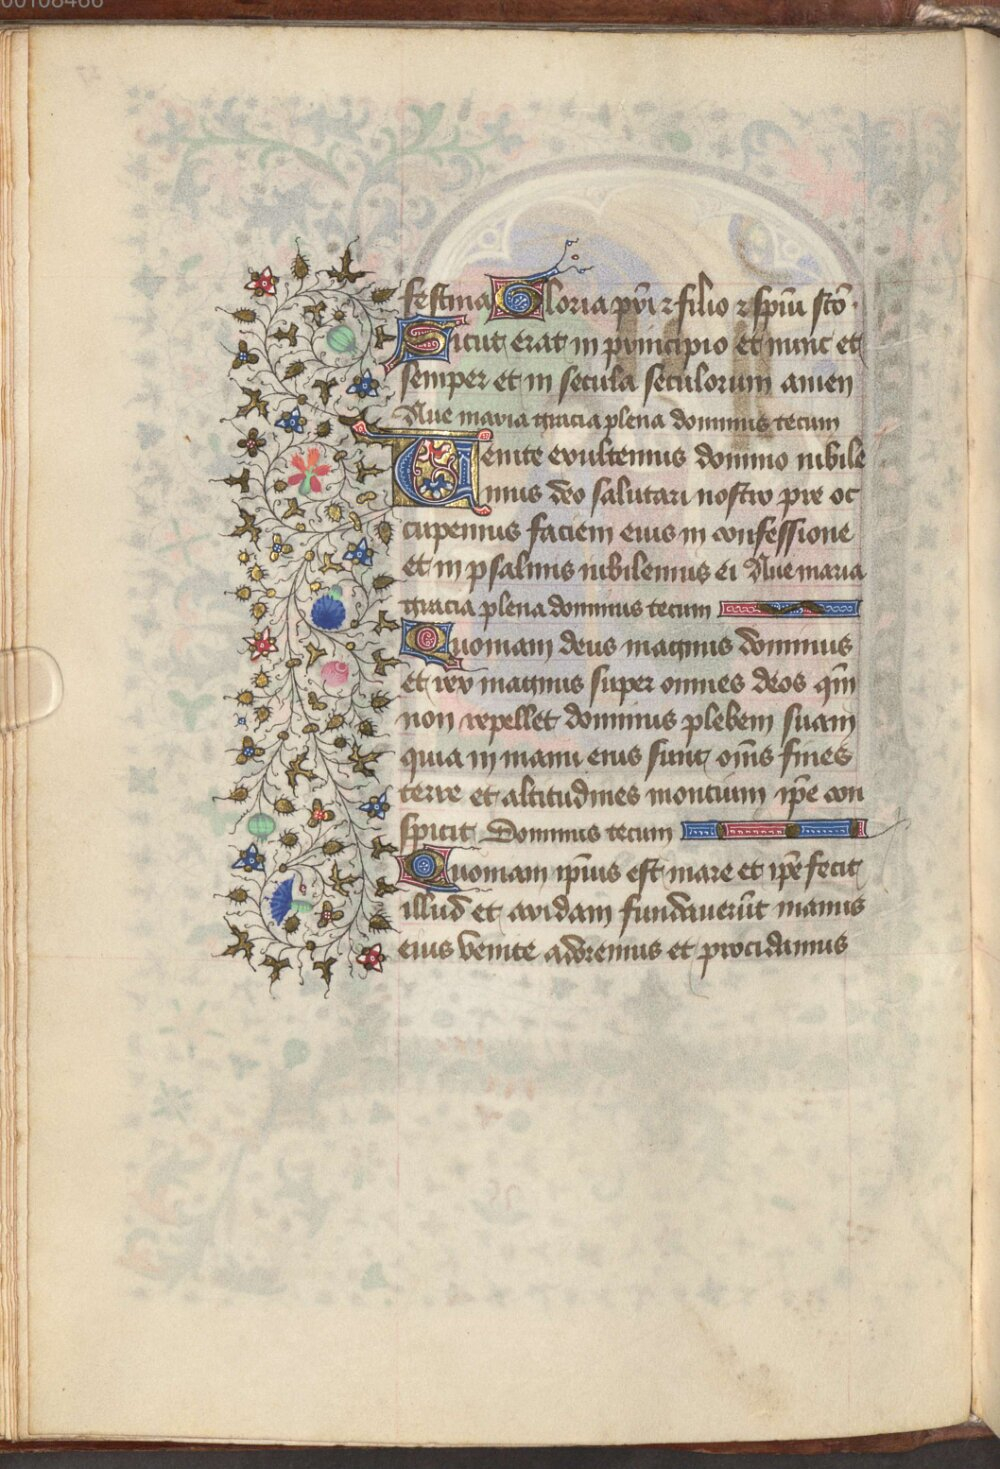 00108466
festina Gloria pr̄i ⁊ filio ⁊ sp̄iu sc̄o ·
Sicut erat in principio et nunc et
semper et in secula seculorum amen
Aue maria gracia plena dominus tecum
Uenite exultemus domino iubile
mus deo salutari nostro pre oc
cupemus faciem eius in confessione
et in psalmis iubilemus ei Aue maria
gracia plena dominus tecum
Quoniam deus magnus dominus
et rex magnus super omnes deos qm̄
non repellet dominus plebem suam
quia in manu eius sunt om̄s fines
terre et altitudines montium ip̄e con
spicit Dominus tecum
Quoniam ip̄ius est mare et ip̄e fecit
illud et aridam fundauerūt manus
eius venite adoremus et procidamus